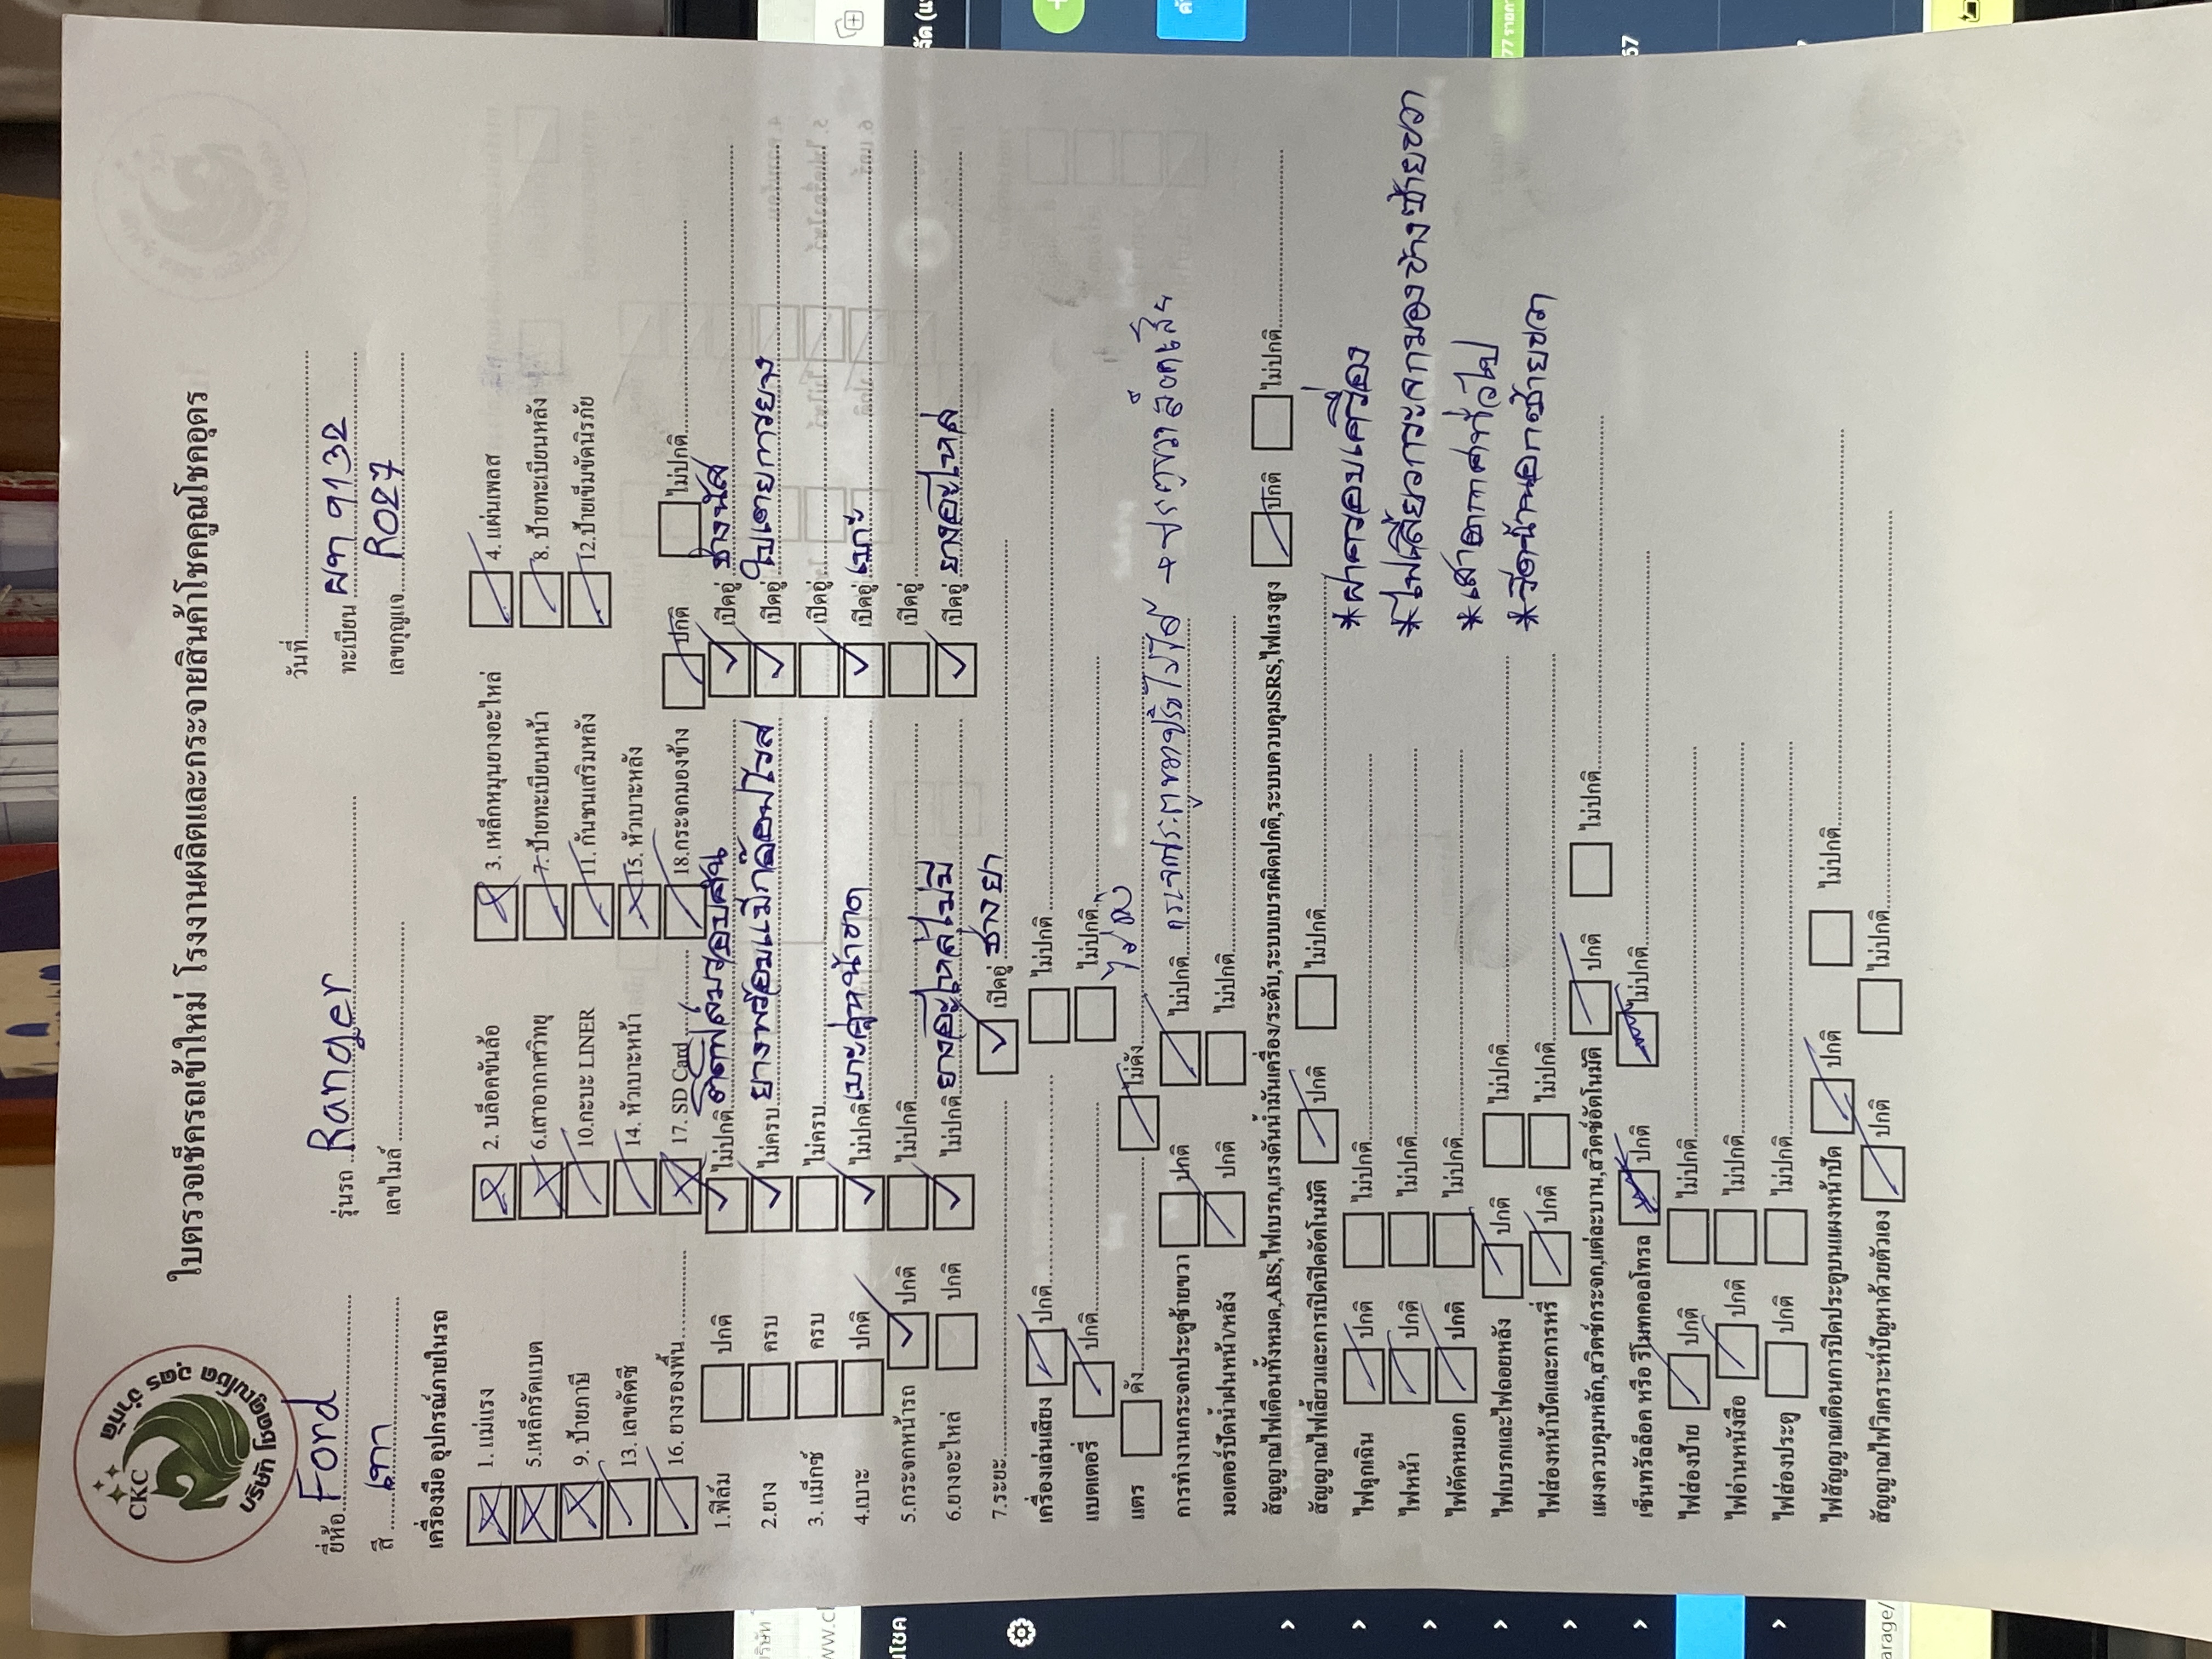 CKC
บริษัท โชคคูณโชค อุดร จำกัด
ใบตรวจเช็ครถเข้าใหม่ โรงงานผลิตและกระจายสินค้าโชคคูณโชคอุดร
วันที่
ยี่ห้อ Ford รุ่นรถ Ranger ทะเบียน ผท 9132
สี เทา เลขไมล์ เลขกุญแจ R027
เครื่องมือ อุปกรณ์ภายในรถ
1. แม่แรง 2. บล็อคขันล้อ 3. เหล็กหมุนยางอะไหล่ 4. แผ่นเพลส
5.เหล็กรัดแบต 6.เสาอากาศวิทยุ 7. ป้ายทะเบียนหน้า 8. ป้ายทะเบียนหลัง
9. ป้ายภาษี 10.กะบะ LINER 11. กันชนเสริมหลัง 12.ป้ายเข็มขัดนิรภัย
13. เลขคัตซี 14. หัวเบาะหน้า 15. หัวเบาะหลัง
16. ยางรองพื้น 17. SD Card 18.กระจกมองข้าง ปกติ ไม่ปกติ
1.ฟิล์ม ปกติ ไม่ปกติ ติดฟิล์มรอบคัน เบิคอู่ ช่างนัส
2.ยาง ครบ ไม่ครบ ยางพร้อมแม็กล้อมโรส เบิคอู่ ใบเตยการยาง
3. แม็กซ์ ครบ ไม่ครบ เบิคอู่
4.เบาะ ปกติ ไม่ปกติ เบาะคู่หน้าขาด เบิคอู่ เบกี้
5.กระจกหน้ารถ ปกติ ไม่ปกติ เบิคอู่
6.ยางอะไหล่ ปกติ ไม่ปกติ ยางอะไหล่ไม่มี เบิคอู่ ยางอะไหล่
7.ระยะ เบิคอู่ ช่างยา
เครื่องเล่นเสียง ปกติ ไม่ปกติ
แบตเตอรี่ ปกติ ไม่ปกติ
แตร ดัง ไม่ดัง ไม่ดัง
การทำงานกระจกประตูซ้ายขวา ปกติ ไม่ปกติ
มอเตอร์ปัดน้ำฝนหน้า/หลัง ปกติ ไม่ปกติ
สัญญาณไฟเตือนทั้งหมด,ABS,ไฟเบรก,แรงดันน้ำมันเครื่อง/ระดับ,ระบบเบรกผิดปกติ,ระบบควบคุมSRS,ไฟแรงสูง ปกติ ไม่ปกติ
สัญญาณไฟเลี้ยวและการเปิดปิดอัตโนมัติ ปกติ ไม่ปกติ
ไฟฉุกเฉิน ปกติ ไม่ปกติ
ไฟหน้า ปกติ ไม่ปกติ
ไฟตัดหมอก ปกติ ไม่ปกติ
ไฟเบรกและไฟถอยหลัง ปกติ ไม่ปกติ
ไฟส่องหน้าปัดและการหรี่ ปกติ ไม่ปกติ
*ฝาครอบเครื่อง
*ไฟเลี้ยวกระจกมองข้างซ้ายขวา
*เสาอากาศท่อไอ
*รีดน้ำนอกซ้ายขวา
แผงควบคุมหลัก,สวิตช์กระจก,แต่ละบาน,สวิตช์อัตโนมัติ ปกติ ไม่ปกติ
เซ็นทรัลล็อค หรือ รีโมทคอลโทรล ปกติ ไม่ปกติ
ไฟส่องป้าย ปกติ ไม่ปกติ
ไฟอ่านหนังสือ ปกติ ไม่ปกติ
ไฟส่องประตู ปกติ ไม่ปกติ
ไฟสัญญาณเตือนการปิดประตูบนแผงหน้าปัด ปกติ ไม่ปกติ
สัญญาณไฟวิเคราะห์ปัญหาด้วยตัวเอง ปกติ ไม่ปกติ